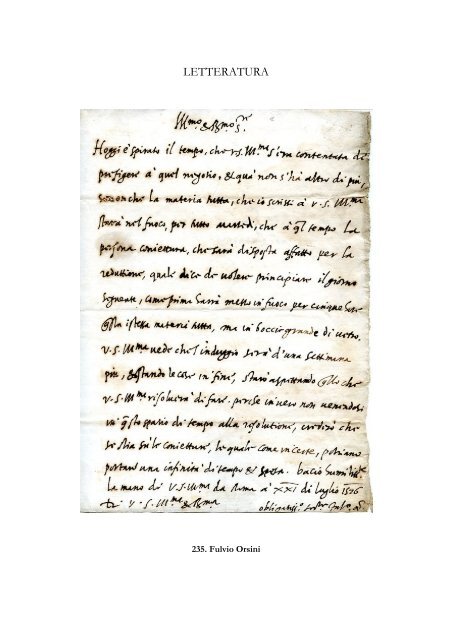 LETTERATURA
Ill.mo & R.mo S.r
Hoggi è spirato il tempo, che v.s. Ill.ma s'era contentata di
prefigere à quel negotio, & qua non s'ha altro di più,
senon che la materia tutta, che io scrissi à v. s. Ill.ma
starà nel fuoco, per tutto martedi, che à ql tempo la
persona coniettura, che sarà disposta affatto per la
reduttione, quale dice de volere principiare il giorno
sequente, come prima harrà messo in fuoco per cinque hore
qsta istessa materia tutta, ma in boccio grande di vetro.
v. s. Ill.ma vede che l'indugio serà d'una settimana
più, & stando le cose in fine, starò aspettando qllo che
v. s. Ill.ma risolverà di fare. perse in vero non venendosi
in qsto spatio di tempo alla resolutione, crederò che
se stia su le conietture, le quale come incerte, potriano
portare una infinità di tempo & spesa. bacio humil.te
la mano di V. S. Ill.ma da Roma à XXI di luglio 1576
di v. s. Ill.ma & R.ma
obligatiss.o
235. Fulvio Orsini